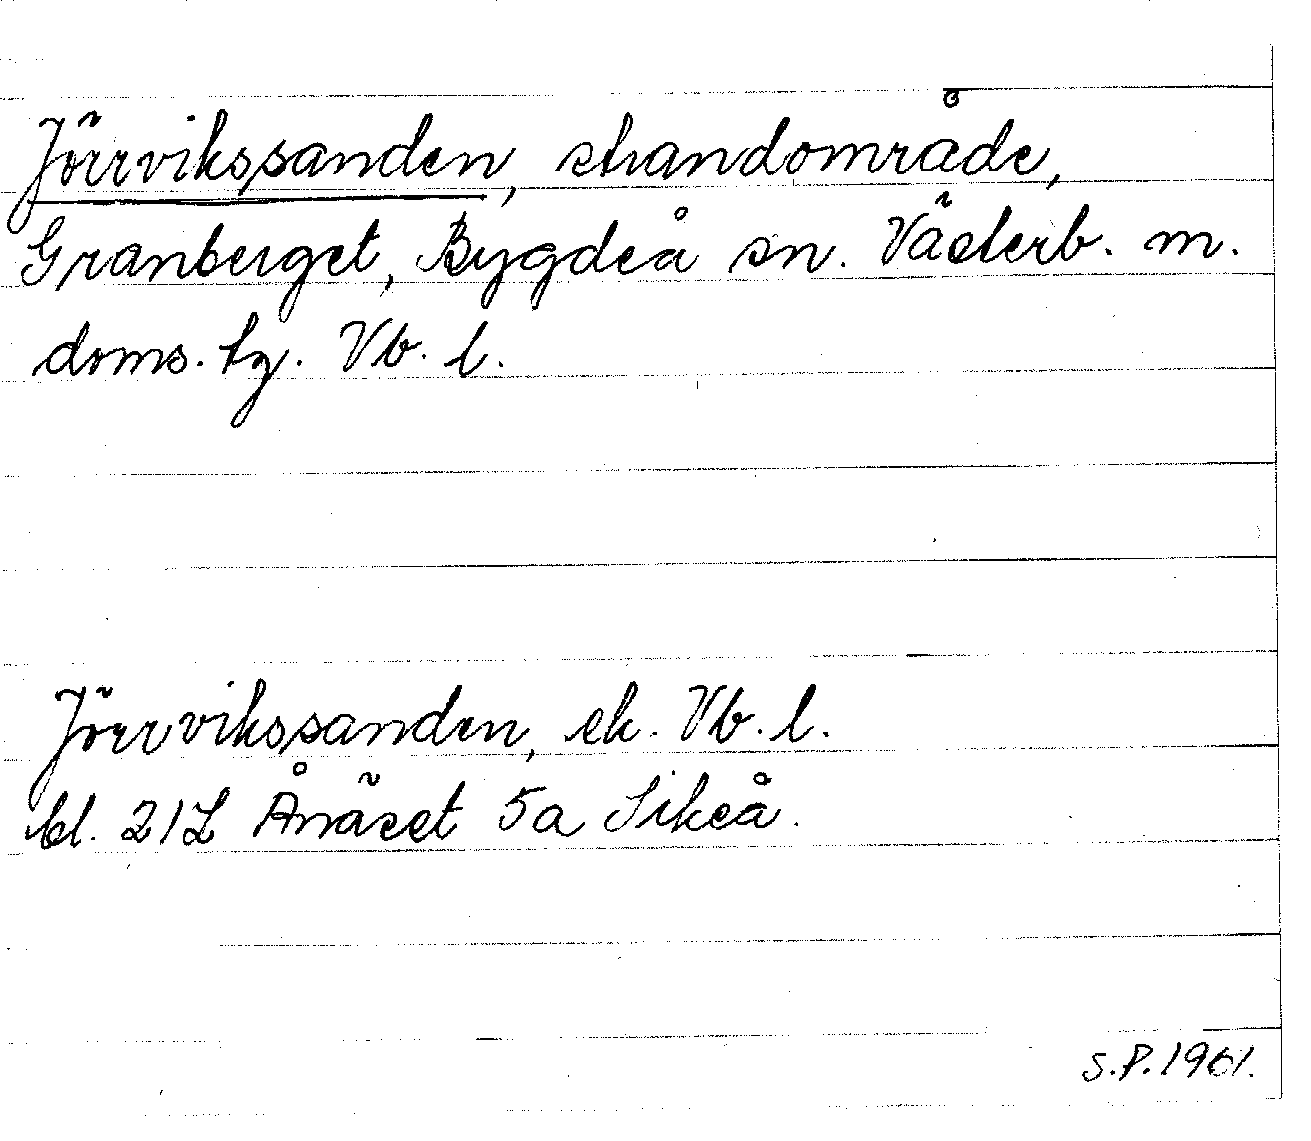 Jörrvikssanden, strandområde,
Granberget, Bygdeå sn. Västerb. m.
doms. tg. Vb. l.
Jörrvikssanden, ek. Vb. l.
bl. 21L Ånäset 5a Sikeå.
S.P. 1961.